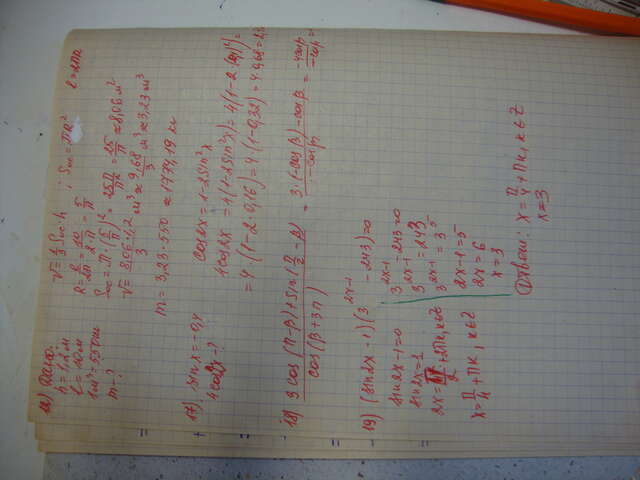 16) Дано:
h = 1,2 м
l = 10 м
1 м³ - 550 кг
m - ?
V = 1/3 Sос · h ; Sос = πR² l = 2πR
R = l/2π = 10/2π = 5/π
Sос = π · (5/π)² = 25π/π² = 25/π ≈ 8,06 м²
V = 8,06 · 1,2/3 м³ ≈ 9,68/3 м³ ≈ 3,23 м³
m = 3,23 · 550 ≈ 1774,19 кг
17) sin x = -0,4
4cos2x - ?
cos2x = 1 - 2sin²x
4cos2x = 4(1 - 2sin²x) = 4(1 - 2·(0,4)²) =
= 4(1 - 2·0,16) = 4(1 - 0,32) = 4·0,68 = 2,72
18) 3cos(π-β) + sin(π/2 - β) / cos(β+3π) = 3·(-cosβ) - cosβ / -cosβ = -4cosβ / -cosβ =
19) (sin2x - 1)(3^(2x-1) - 243) = 0
sin2x - 1 = 0
sin2x = 1
2x = π/2 + 2πk, k∈Z
x = π/4 + πk, k∈Z
3^(2x-1) - 243 = 0
3^(2x-1) = 243
3^(2x-1) = 3⁵
2x - 1 = 5
2x = 6
x = 3
Ответ: x = π/4 + πk, k∈Z
x = 3